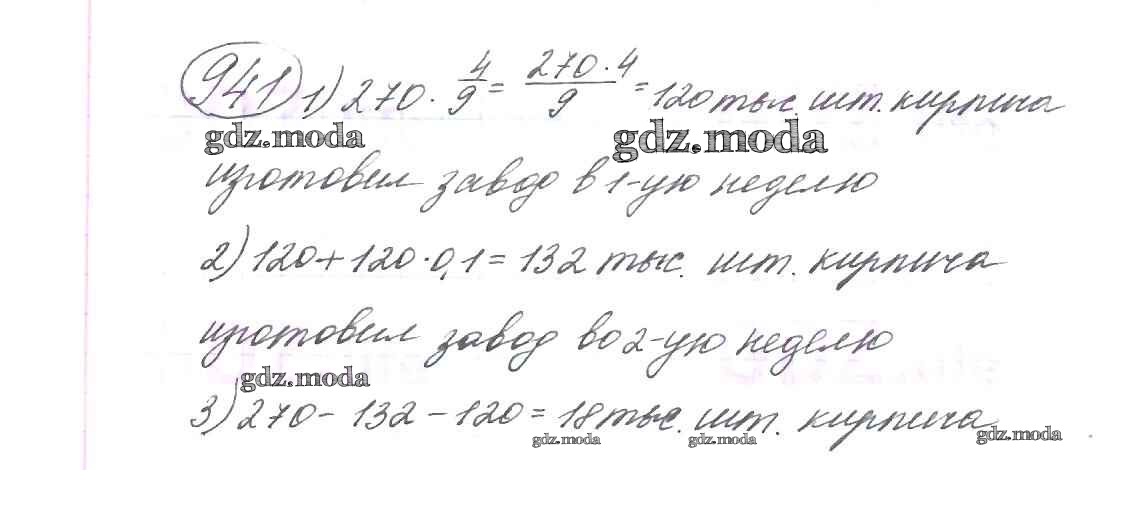 941 1) 270 · 4/9 = 270·4/9 = 120 тыс. шт. кирпича
gdz.moda gdz.moda
изготовил завод в 1-ую неделю
2) 120 + 120 · 0,1 = 132 тыс. шт. кирпича
изготовил завод во 2-ую неделю
gdz.moda
3) 270 - 132 - 120 = 18 тыс. шт. кирпича
gdz.moda gdz.moda gdz.moda